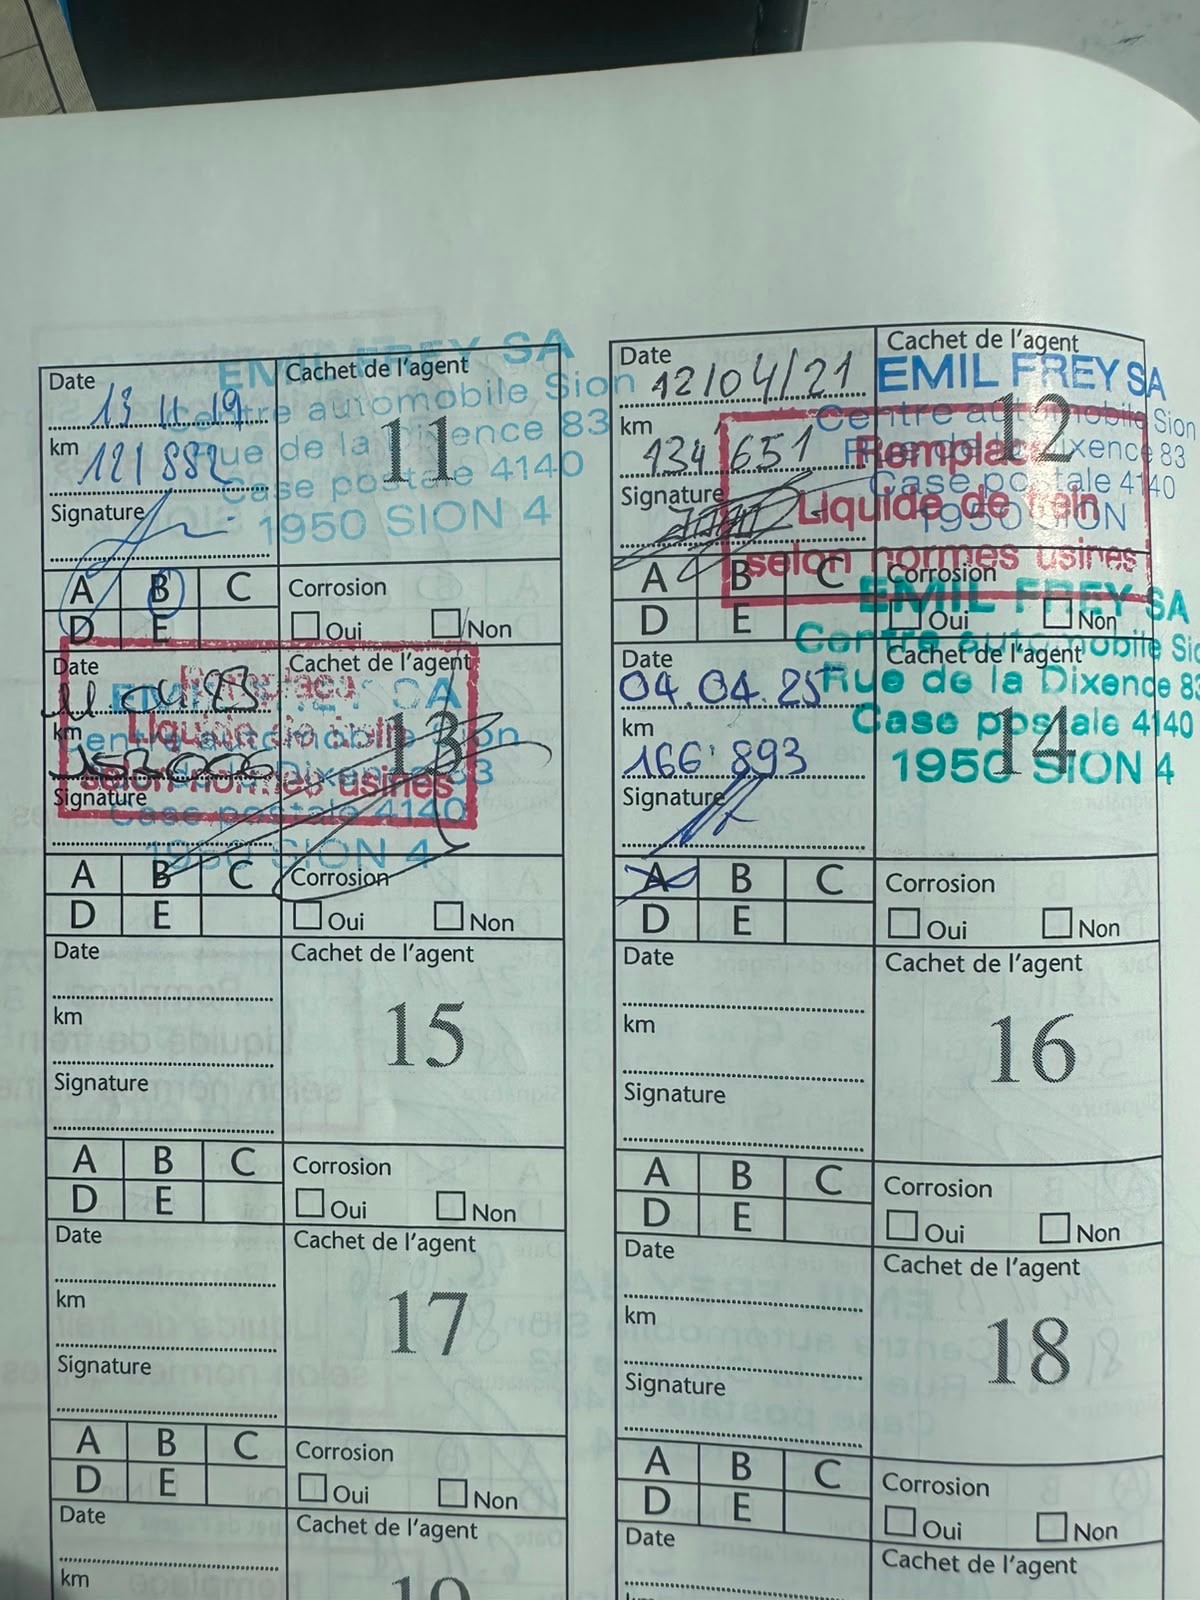 Date 13 11 19
km 121 882
Signature
Cachet de l'agent
11
EMIL FREY SA
Centre automobile Sion
Rue de la Dixence 83
Case postale 4140
1950 SION 4
A B C
D E
Corrosion
Oui Non
Date 12/04/21
km 134'651
Signature
Cachet de l'agent
12
EMIL FREY SA
Centre automobile Sion
Rue de la Dixence 83
Case postale 4140
1950 SION
Remplacé
Liquide de frein
selon normes usines
A B C
D E
Corrosion
Oui Non
Date
km
Signature
Cachet de l'agent
13
Remplacé
Liquide de frein
selon normes usines
EMIL FREY SA
Centre automobile Sion
Rue de la Dixence 83
Case postale 4140
1950 SION 4
A B C
D E
Corrosion
Oui Non
Date 04.04.25
km 166'893
Signature
Cachet de l'agent
14
EMIL FREY SA
Centre automobile Sion
Rue de la Dixence 83
Case postale 4140
1950 SION 4
A B C
D E
Corrosion
Oui Non
Date
km
Signature
Cachet de l'agent
15
A B C
D E
Corrosion
Oui Non
Date
km
Signature
Cachet de l'agent
16
A B C
D E
Corrosion
Oui Non
Date
km
Signature
Cachet de l'agent
17
A B C
D E
Corrosion
Oui Non
Date
km
Signature
Cachet de l'agent
18
A B C
D E
Corrosion
Oui Non
Date
km
Cachet de l'agent
Date
Cachet de l'agent